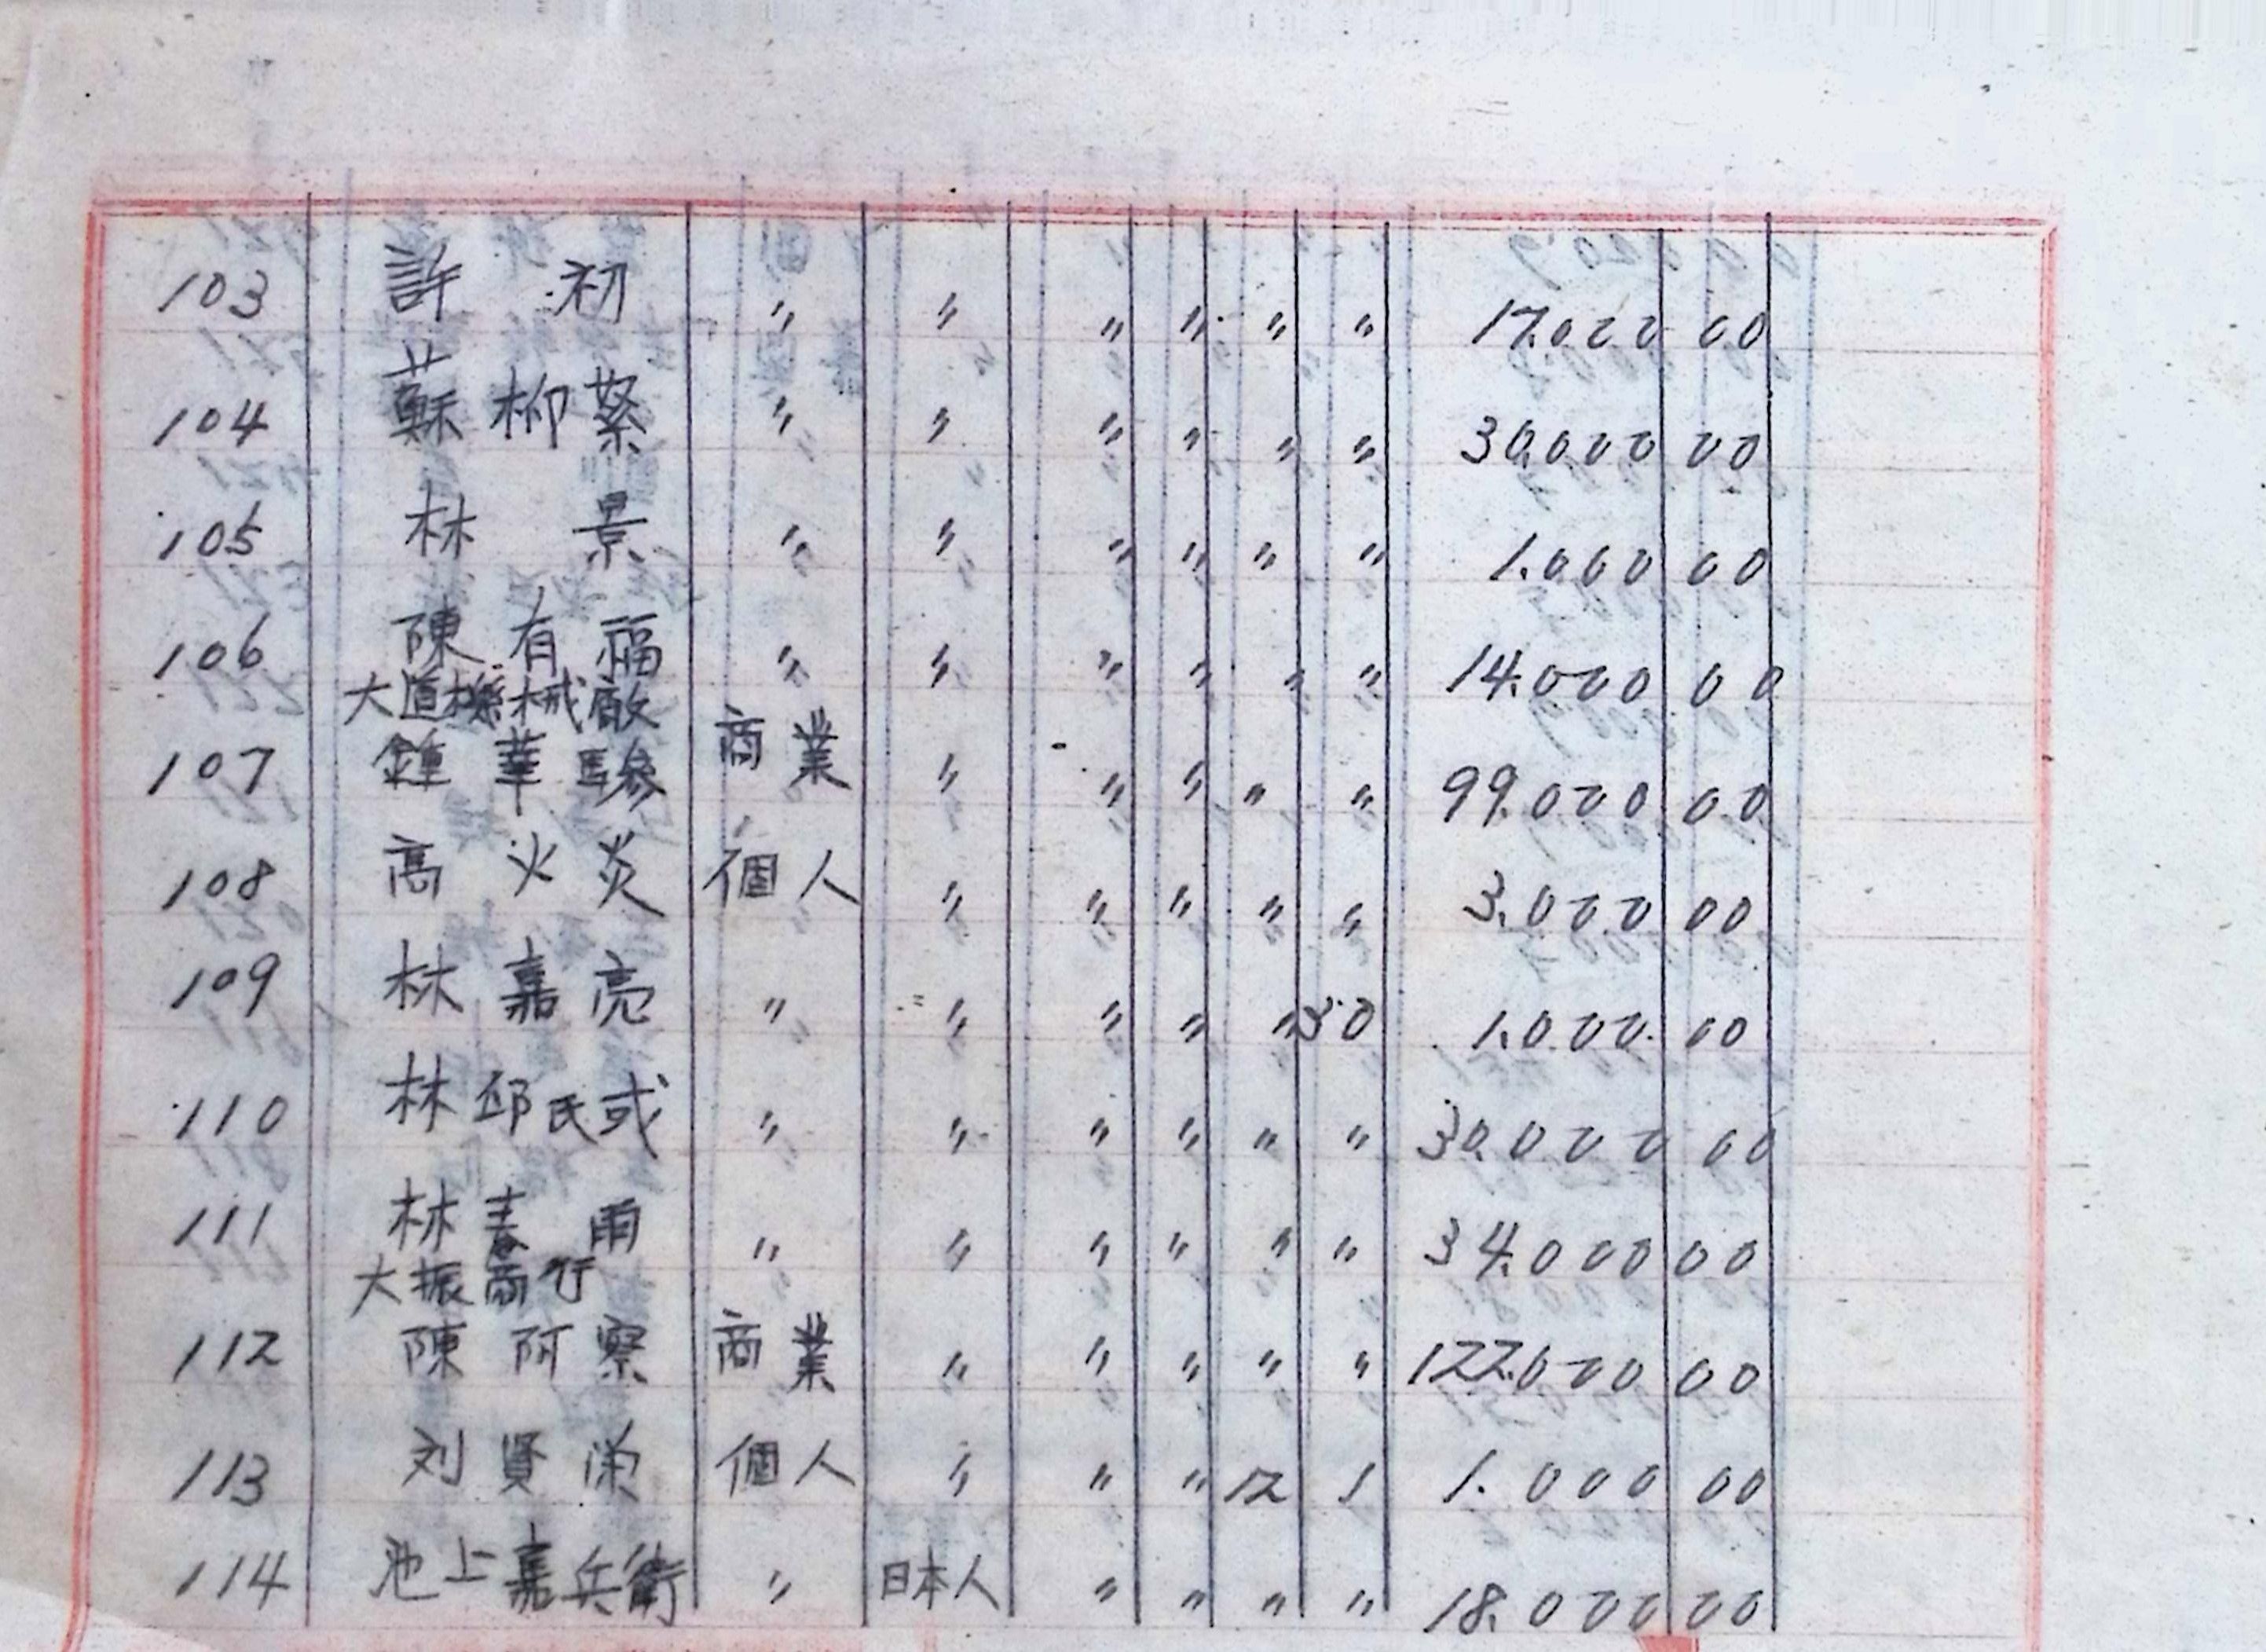 103 許 初 〃 〃 〃 〃 〃 〃 17.000 00
104 蘇柳繁 〃 〃 〃 〃 〃 〃 30.000 00
105 林 景 〃 〃 〃 〃 〃 〃 1.000 00
106 陳有福 〃 〃 〃 〃 〃 〃 14.000 00
大道機械廠
107 鍾華驂 商業 〃 〃 〃 〃 〃 99.000 00
108 高火炎 個人 〃 〃 〃 〃 〃 3.000 00
109 林嘉亮 〃 〃 〃 〃 〃 30 1.000 00
110 林邱氏或 〃 〃 〃 〃 〃 〃 30.000 00
111 林春雨 〃 〃 〃 〃 〃 〃 34.000 00
大振商行
112 陳阿察 商業 〃 〃 〃 〃 〃 122.000 00
113 刘賢栄 個人 〃 〃 〃 12 1 1.000 00
114 池上嘉兵衛 〃 日本人 〃 〃 〃 〃 18.000 00